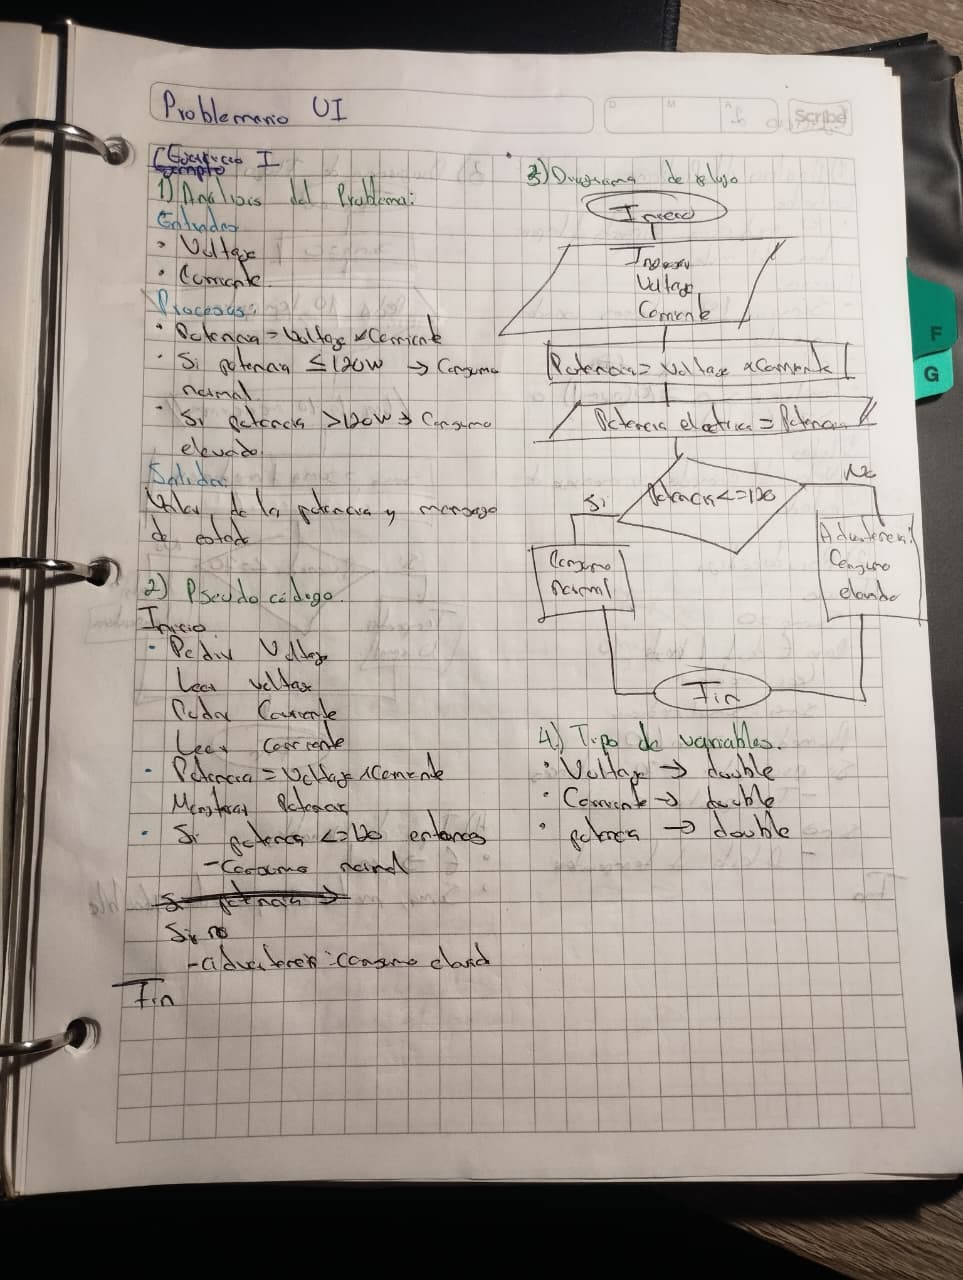 Problemario UI
D M A
Scribe
Ejercicio I
1) Análisis del Problema:
Entradas
• Voltaje
• Corriente
Procesos:
• Potencia = Voltaje x Corriente
• Si potencia ≤ 120W → Consumo
normal
• Si potencia > 120W → Consumo
elevado
Salida:
Valor de la potencia y mensaje
de estado
2) Pseudo código.
Inicio
• Pedir Voltaje
Leer voltaje
Pedir Corriente
Leer corriente
• Potencia = Voltaje x Corriente
Mostrar Potencia
• Si potencia <= 120 entonces
- Consumo normal
Si potencia →
Si no
- advertencia: consumo elevado
Fin
3) Diagrama de flujo
Inicio
Ingresar
Voltaje
Corriente
Potencia = Voltaje x Corriente
Potencia electrica = Potencia
Potencia <= 120
Si
No
Consumo
normal
Advertencia:
Consumo
elevado
Fin
4) Tipo de variables.
• Voltaje → double
• Corriente → double
• potencia → double
F
G